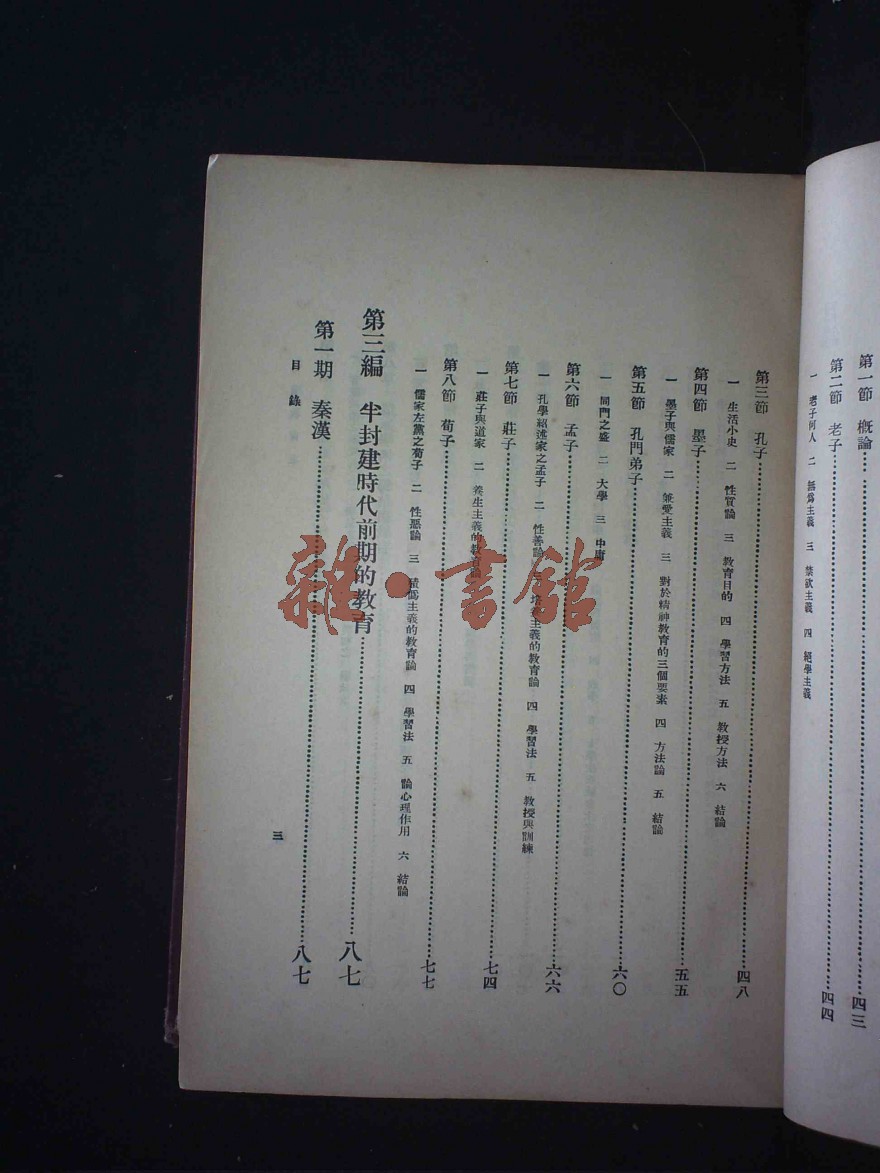 第一節　概論……四三
第二節　老子……四四
一　老子何人　二　無爲主義　三　禁欲主義　四　絕學主義
第三節　孔子……四八
一　生活小史　二　性質論　三　教育目的　四　學習方法　五　教授方法　六　結論
第四節　墨子……五五
一　墨子與儒家　二　兼愛主義　三　對於精神教育的三個要素　四　方法論　五　結論
第五節　孔門弟子……六〇
一　同門之盛　二　大學　三　中庸
第六節　孟子……六六
一　孔學紹述家之孟子　二　性善論　三　主義的教育論　四　學習法　五　教授與訓練
第七節　莊子……七四
一　莊子與道家　二　養生主義的教育論
第八節　荀子……七七
一　儒家左黨之荀子　二　性惡論　三　積爲主義的教育論　四　學習法　五　論心理作用　六　結論
第三編　半封建時代前期的教育……八七
第一期　秦漢……八七
目錄
三
雜·書館